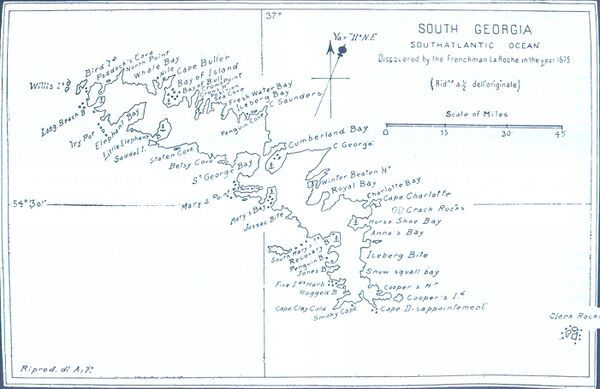 37°
SOUTH GEORGIA
SOUTHATLANTIC OCEAN
Discovered by the Frenchman La Roche in the year 1675
(Rid.ne a ½ dell'originale)
Scale of Miles
0 15 30 45
Var.n 11° N.E
Willis I.d
Bird I.d
Paddock's Cove
North Point
Whale Bay
Nile
Cape Buller
Bay of Island
Bay of Bull
Point
Sea Cove
Fresh Water Bay
Iceberg Bay
C Saunders
Penguin Cove
Long Beach B
Try Pot
Elephant Bay
Little Elephant
Saddal I.
Staten Cove
Betsy Cove
Cumberland Bay
C George
St George Bay
Winter Beaten Hr
Royal Bay
Charlotte Bay
Cape Charlotte
54°30'
Mary's Point
Mary's Bay
Jossac Bite
Crack Rocks
Horse Shoe Bay
Anna's Bay
South Mary's Id
Recovery B
Penguin B
Jones B
Iceberg Bite
Snow squall bay
Five Ids Harb
Rogged B
Cooper's Hr
Cooper's I.d
Cape Clay Cold
Smoky Cape
Cape Disappointement
Clerk Rocks
Riprod. di A. F.